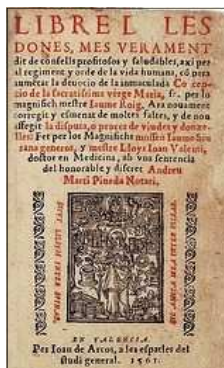 LIBRE DE LES
DONES, MES VERAMENT
dit de consells profitosos y saludables, axi per
al regiment y orde de la vida humana, cõ pera
aumentar la deuocio de la inmaculada Co cep-
cio de la sacratissima verge Maria, fe per lo
magnifich mestre Iaume Roig, Ara nouament
corregit y esmenat de moltes faltes, y de nou
affegit la disputa, o proces de viudes y donze-
lles: Fet per los Magnifichs mossen Iaume Siu
rana generos, y mestre Lloys Ioan Valenti,
doctor en Medicina, ab vna sentencia
del honorable y discret Andreu
Marti Pineda Notari,
EN VALENCIA.
Per Ioan de Arcos, a les espatles del
studi general. 1561.